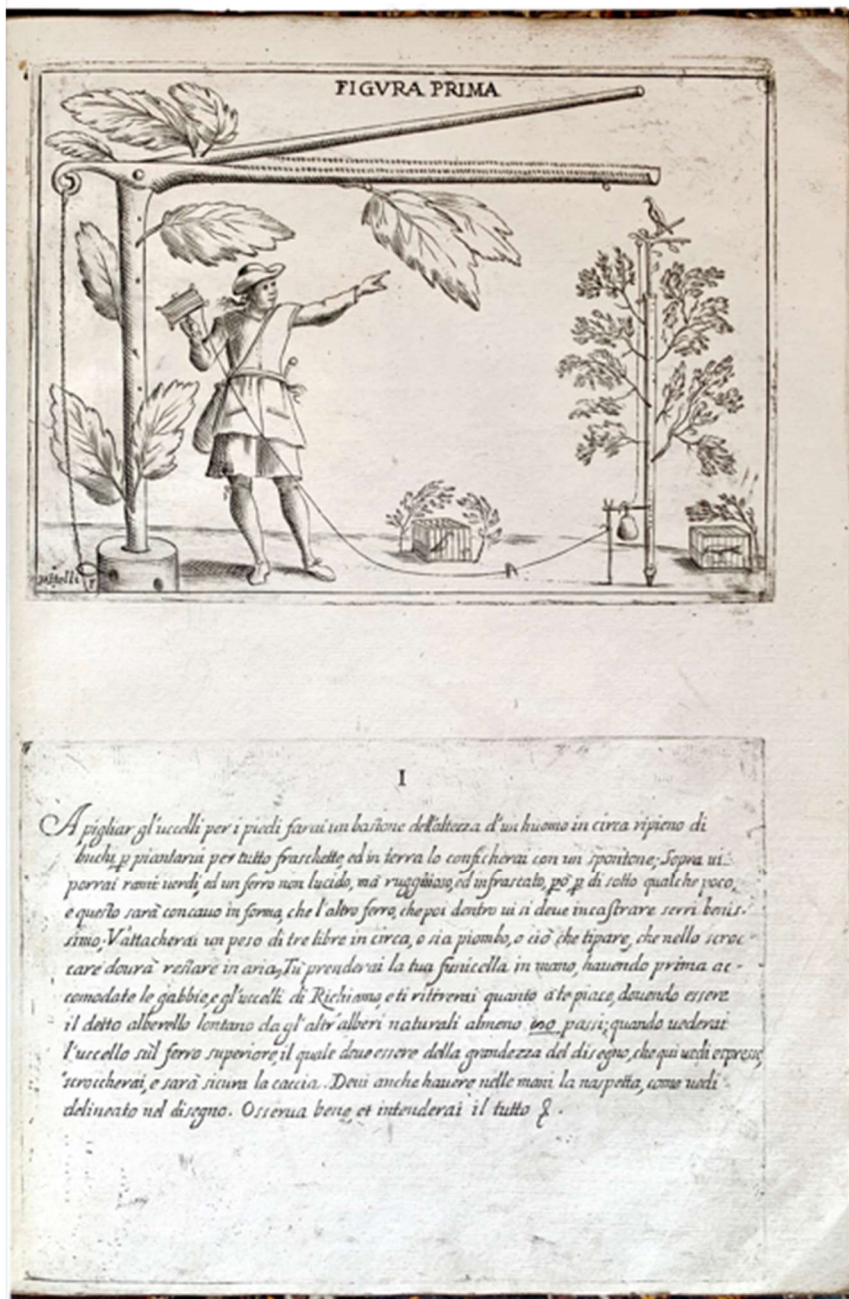 FIGVRA PRIMA
I
A pigliar gl'uccelli per i piedi farai un bastone dell'altezza d'un huomo in circa ripieno di
buchi, p piantarui per tutto fraschette, ed in terra lo conficherai con un spontone; Sopra ui
porrai rami uerdi, ed un ferro non lucido, mà rugginoso, ed infrascato, pò p di sotto qualche poco,
e questo sarà concauo in forma, che l'altro ferro, che poi dentro ui si deue incastrare serri benis-
simo; V'attacherai un peso di tre libre in circa, o sia piombo, o ciò che ti pare, che nello scroc-
care dourà restare in aria; Tù prenderai la tua funicella in mano, hauendo prima ac-
comodate le gabbie, e gl'uccelli di Richiamo, e ti ritirerai quanto à te piace, douendo essere
il detto alberello lontano da gl'altr'alberi naturali almeno passi; quando uederai
l'uccello sùl ferro superiore, il quale deue essere della grandezza del disegno, che qui uedi espresso,
scroccherai, e sarà sicura la caccia. Deui anche hauere nelle mani la naspetta, come uedi
delineato nel disegno. Osserua bene, et intenderai il tutto